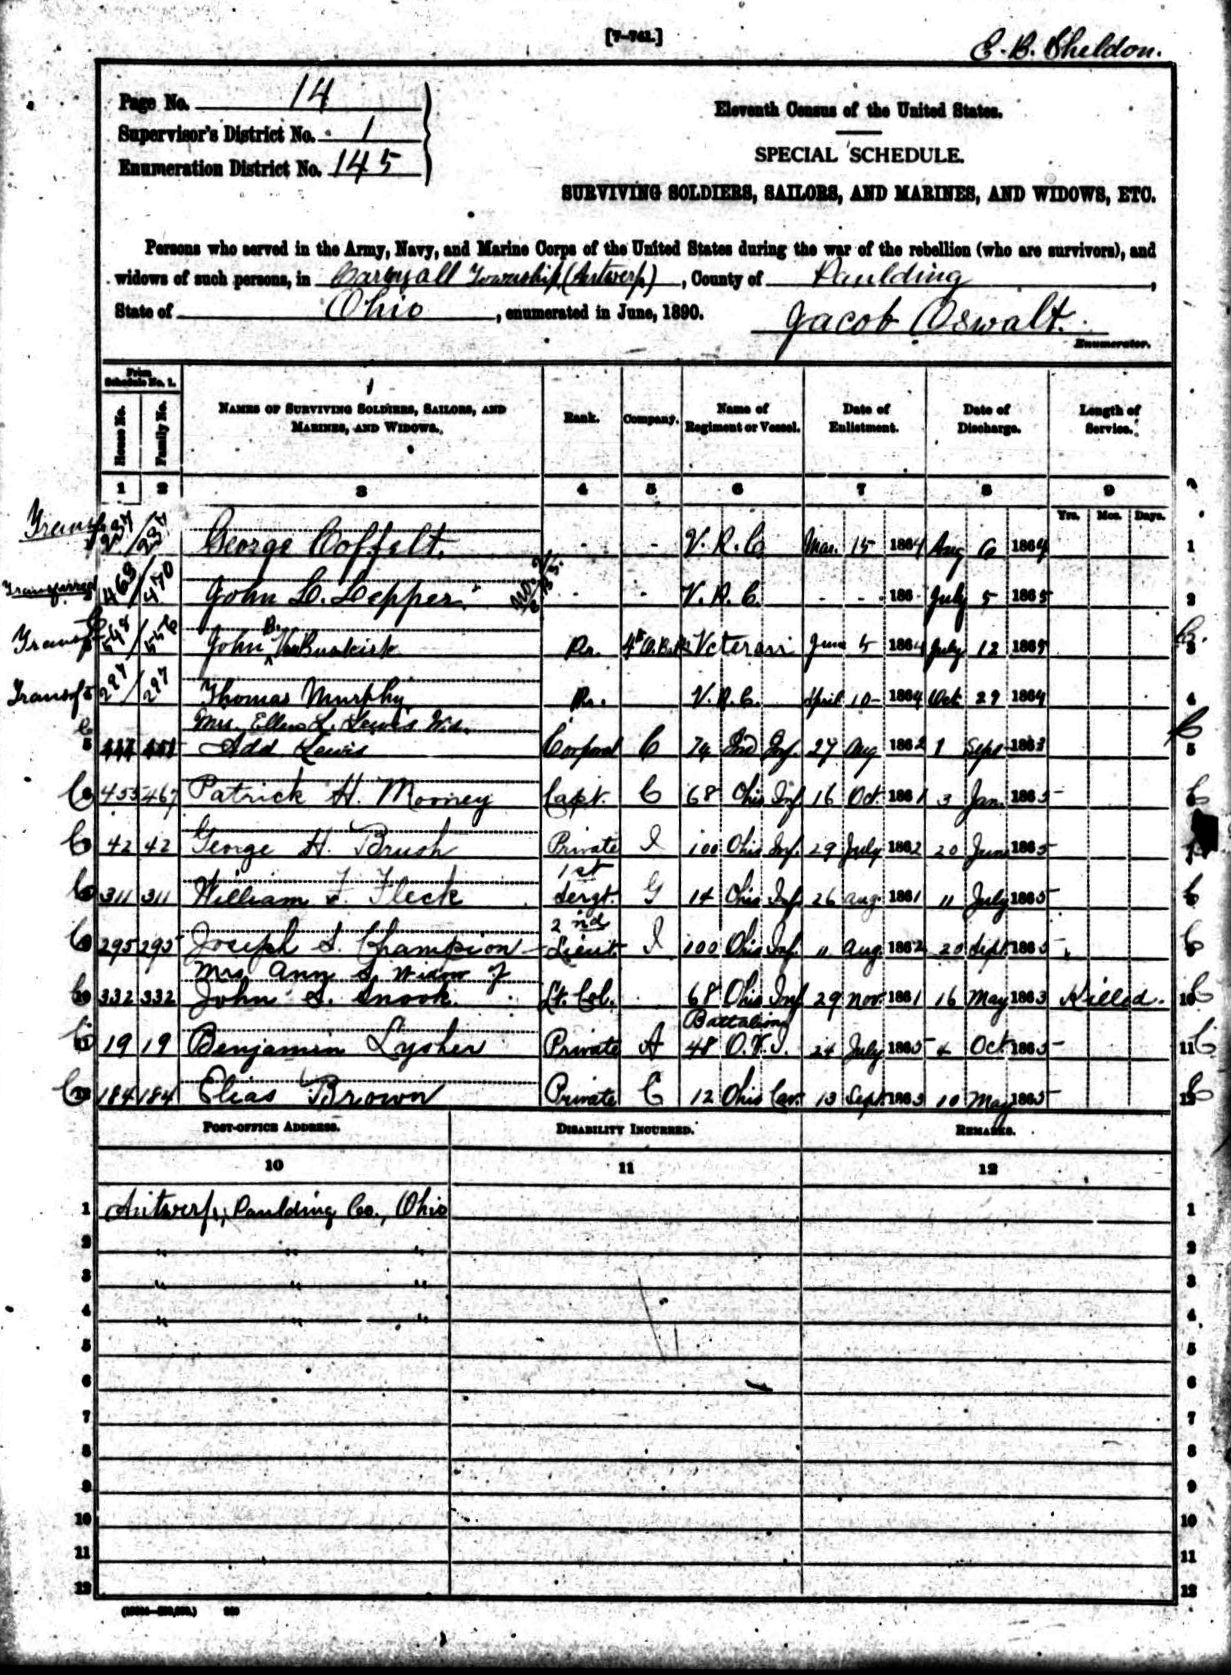 [7-761.]
E. B. Sheldon.
Page No. 14
Supervisor's District No. 1
Enumeration District No. 145
Eleventh Census of the United States.
SPECIAL SCHEDULE.
SURVIVING SOLDIERS, SAILORS, AND MARINES, AND WIDOWS, ETC.
Persons who served in the Army, Navy, and Marine Corps of the United States during the war of the rebellion (who are survivors), and
widows of such persons, in Carryall Township (Antwerp), County of Paulding,
State of Ohio, enumerated in June, 1890. Jacob Oswalt.
Enumerator.
From Schedule No. 1.
House No. Family No. NAMES OF SURVIVING SOLDIERS, SAILORS, AND MARINES, AND WIDOWS. Rank. Company. Name of Regiment or Vessel. Date of Enlistment. Date of Discharge. Length of Service.
1 2 3 4 5 6 7 8 9
Yrs. Mos. Days.
1 George Coffelt. - - V. R. C. Mar. 15 1864 Aug 6 1864 1
Transferred 468 / 470 John L. Lepper - - V. R. C. - - 186 July 5 1865 2
548 / 556 John VanBuskirk Pr. Veteran June 5 1864 July 12 1865 3
297 / 297 Thomas Murphy Pr. V. R. C. April 10 1864 Oct 29 1864 4
Mrs. Ellen L. Lewis Wid.
5 Add Lewis Corporal C 74 Ind Inf 27 Aug 1862 1 Sept 1863 5
C 455 467 Patrick H. Mooney Capt. C 68 Ohio Inf 16 Oct. 1861 3 Jan. 1865 C
C 42 42 George H. Brush Private I 100 Ohio Inf. 29 July 1862 20 June 1865
C 311 311 William F. Fleck 1st Sergt. G 14 Ohio Inf. 26 Aug. 1861 11 July 1865 C
C 295 295 Joseph S. Champion 2nd Lieut. I 100 Ohio Inf. 11 Aug 1862 20 Sept 1865 C
Mrs Ann S. Widow of
C 10 332 332 John S. Snook Lt. Col. 68 Ohio Inf 29 Nov. 1861 16 May 1863 Killed. 10 C
C 11 19 19 Benjamin Lysher Private A 48 Battalion O. V. I. 24 July 1865 4 Oct 1865 11 C
C 12 184 184 Elias Brown Private C 12 Ohio Cav. 13 Sept 1863 10 May 1865 12 C
POST-OFFICE ADDRESS. DISABILITY INCURRED. REMARKS.
10 11 12
1 Antwerp, Paulding Co., Ohio 1
2 " " " 2
3 " " " 3
4 " " " 4
5 5
6 6
7 7
8 8
9 9
10 10
11 11
12 12